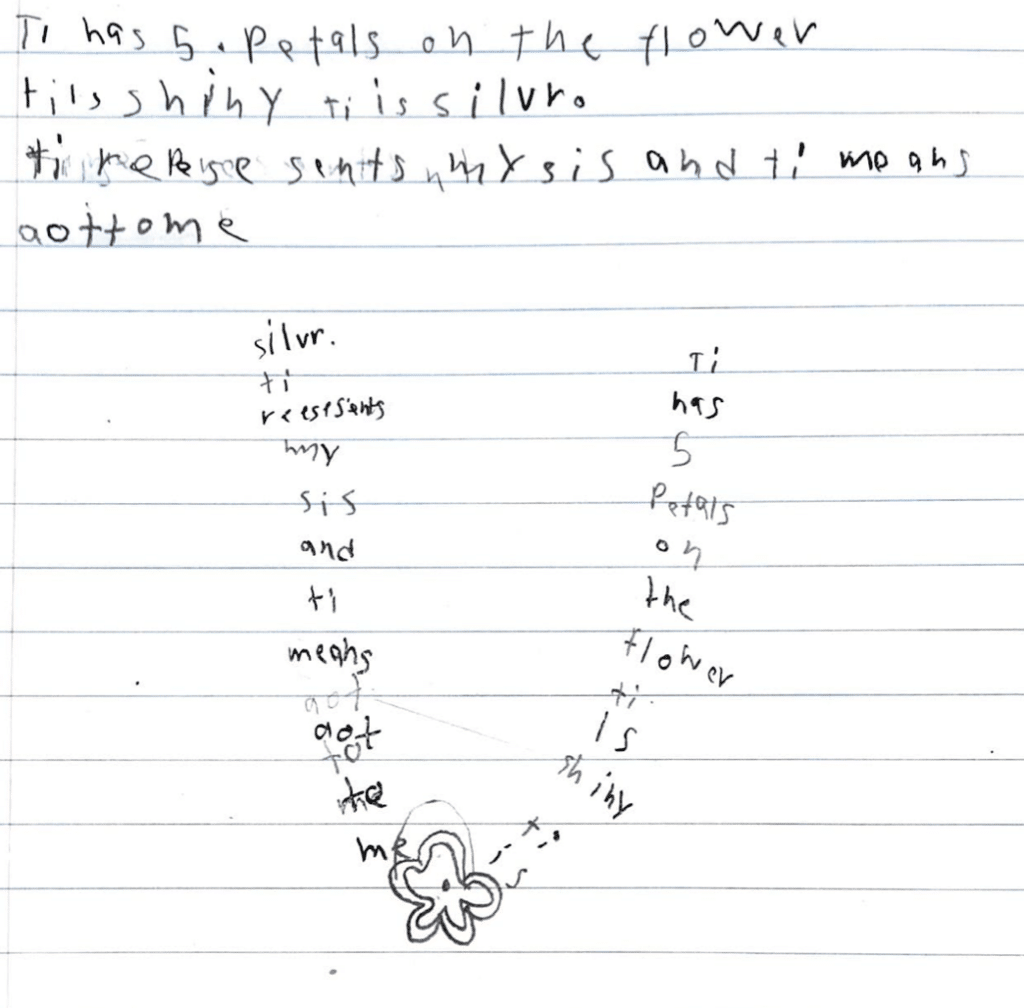 Ti has 5. Petals on the flower
tiis shiny ti is silvr.
ti sents my sis and ti means
aottome
Ti
has
5
Petals
on
the
flower
ti
Is
shiny
ti
is
silvr.
ti
my
sis
and
ti
means
aot
aot
to
me